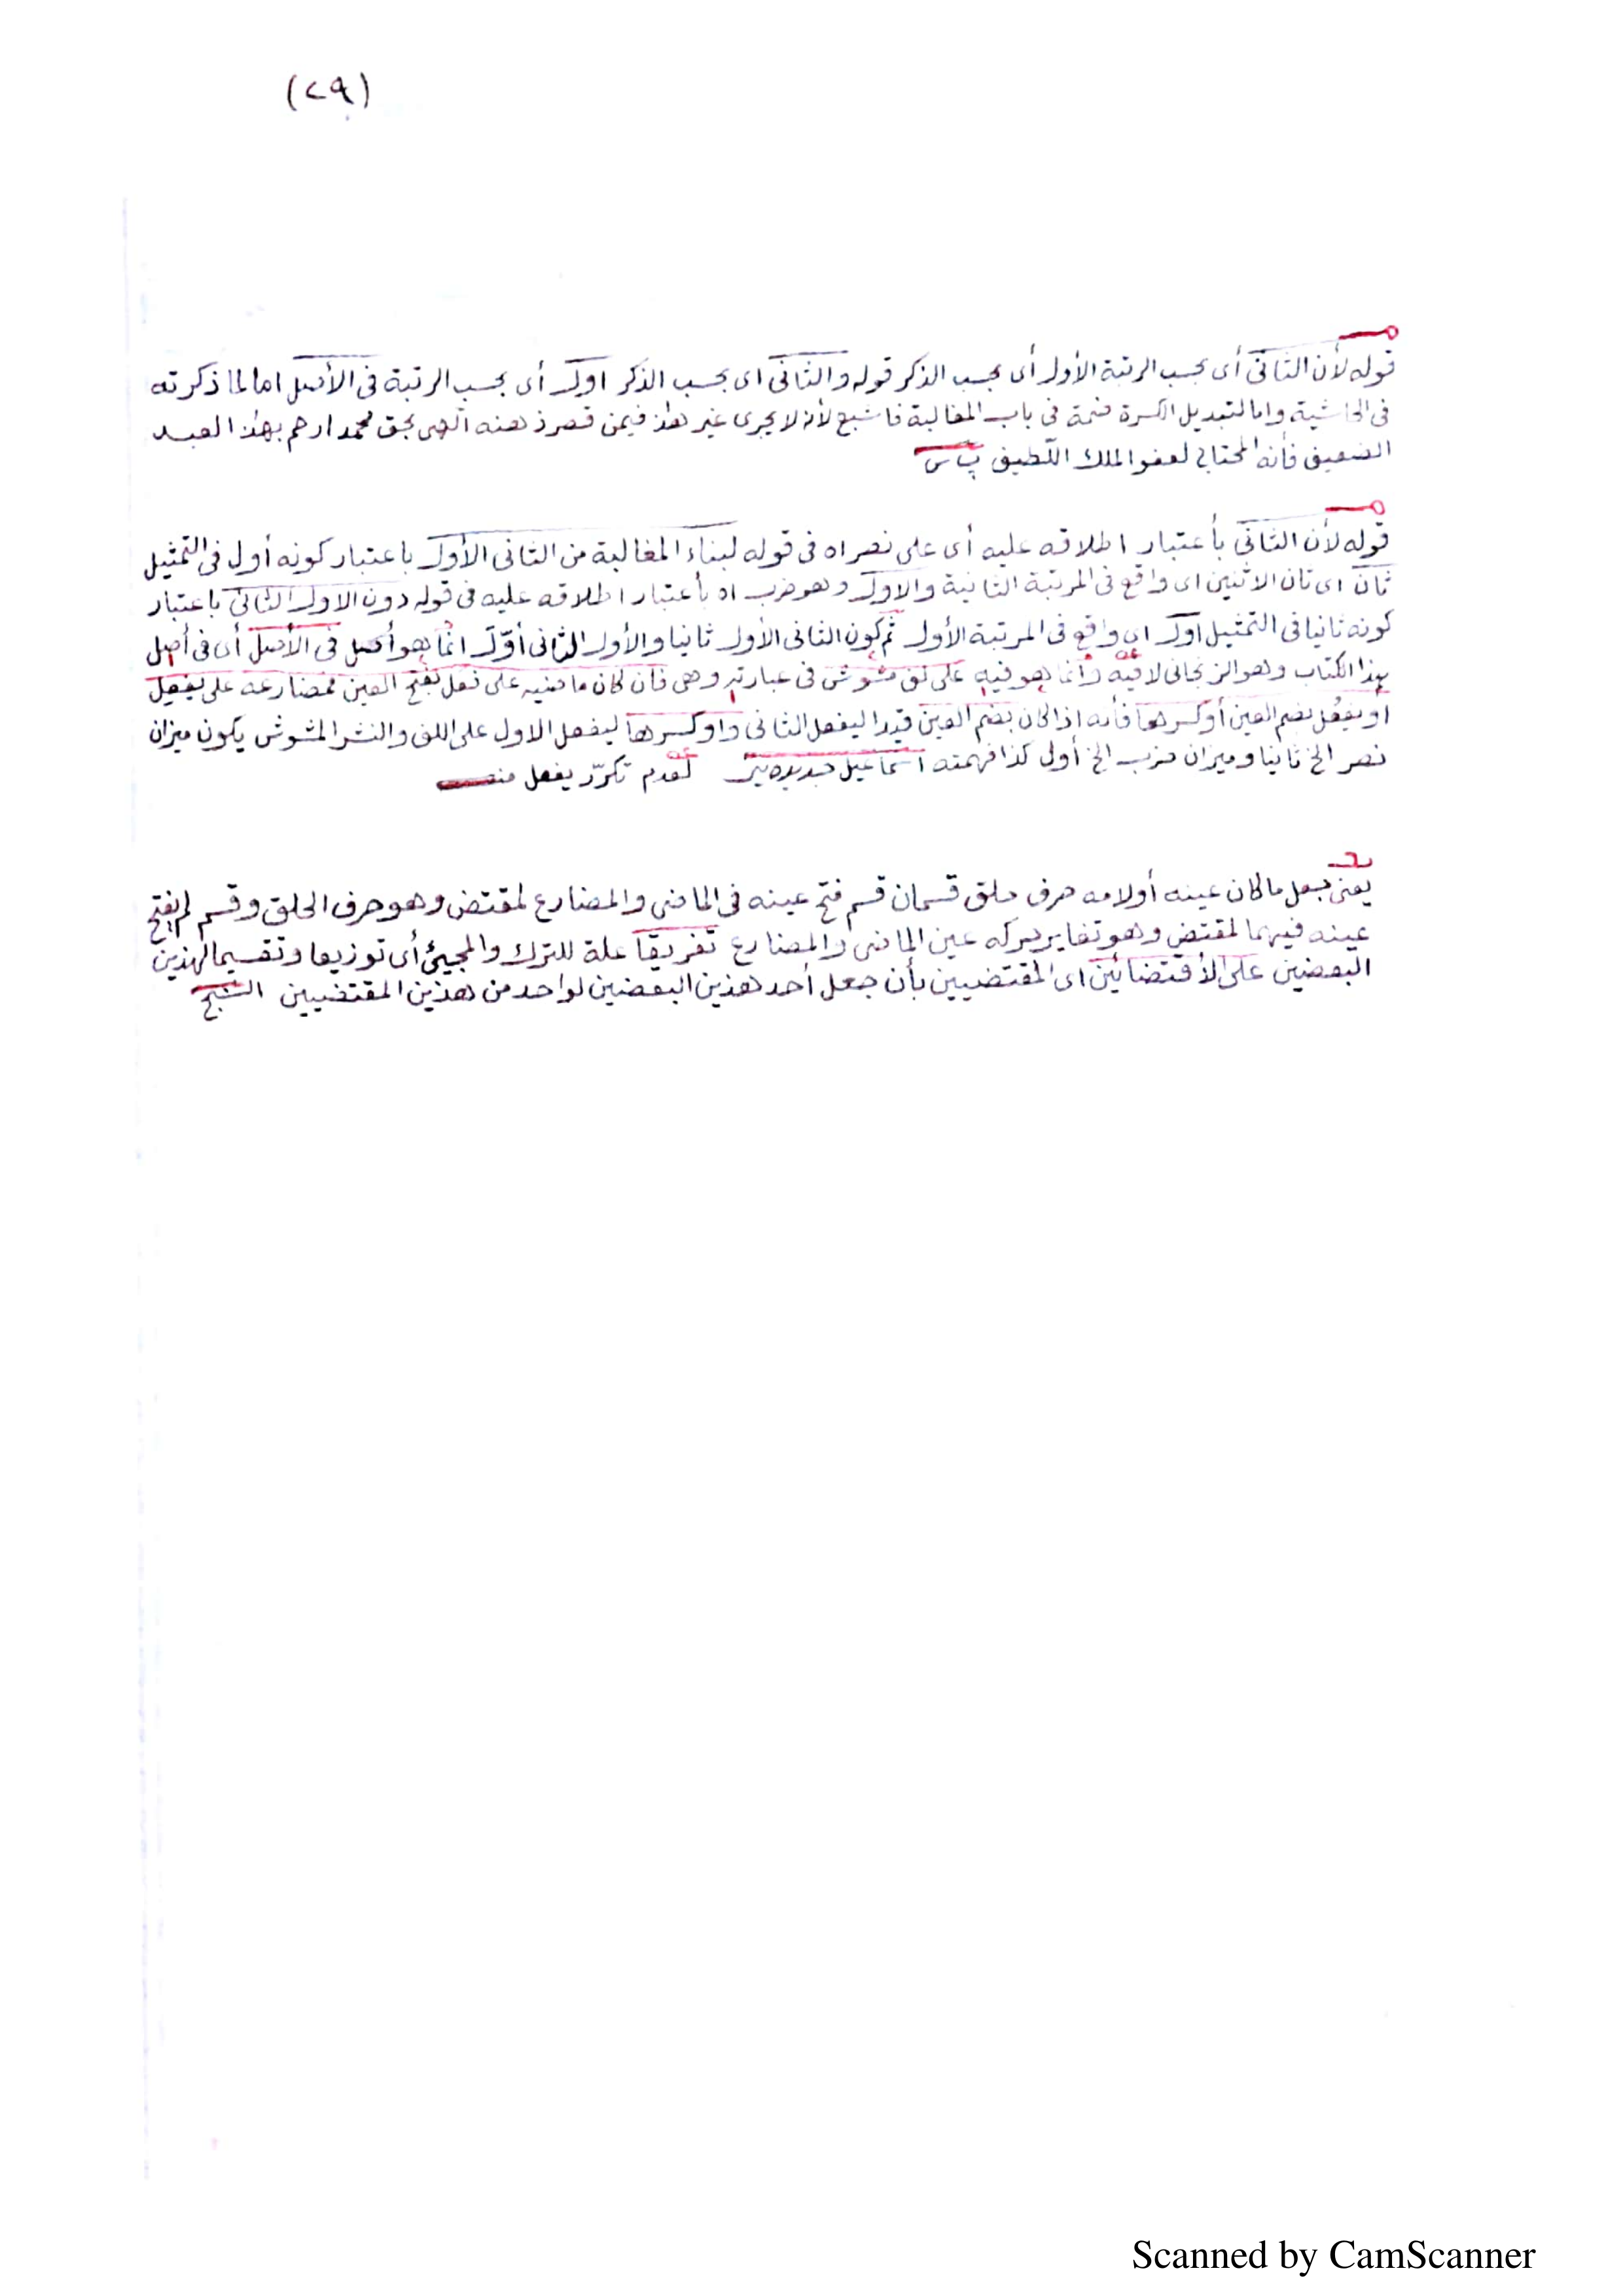 (٢٩)
قوله لأن الثانى أى بحسب الرتبة الأول أى بحسب الذكر قوله والثانى اى بحسب الذكر اول أى بحسب الرتبة فى الأصل اما لما ذكرته
فى الحاشية واما لتبديل الكسرة ضمة فى باب المغالبة لأنه لا يجرى غير هذا فيمن الهى بحق محمد ارحم بهذا العبد
الضعيف فأنه المحتاج لعفو الملك اللطيف
قوله لأن الثانى بأعتبار اطلاقه عليه أى على نصر اه فى قوله لبناء المغالبة من الثانى الأول باعتبار كونه أول فى التمثيل
ثان اى ثان الاثنين اى واقع فى المرتبة الثانية والاول وهو ضرب اه بأعتبار اطلاقه عليه فى قوله دون الاول الثانى باعتبار
كونه ثانيا فى التمثيل اول اى واقع فى المرتبة الأول ثم كون الثانى الأول ثانيا والأول الثانى أوّل انما هو أصل فى الأصل أى فى أصل
هذا الكتاب وهو الزنجانى لا فيه وأنما هو فيه على لف مشوش فى عبارته وهى فان كان ماضيه على فعل بفتح العين فمضارعه على يفعل
او يفعُل بضم العين أو كسرها فأنه اذا كان بضم العين قيدا ليفعل الثانى واو كسرها ليفعل الاول على اللف والنشر المشوش يكون ميزان
نصر الخ ثانيا وميزان ضرب الخ أول كذا فهمته اسماعيل لعدم تكرّر يفعل
يعنى جعل ما كان عينه أو لامه حرف حلق قسمان قسم فتح عينه فى الماضى والمضارع لمقتض وهو حرف الحلق وقسم لم يفتح
عينه فيهما لمقتض وهو تغاير حركه عين الماضى والمضارع تفريقا علة للترك والمجيئ أى توزيعا وتقسيما لهذين
البعضين على الأقتضائين اى المقتضيين بأن جعل أحد هذين البعضين لواحد من هذين المقتضيين
Scanned by CamScanner